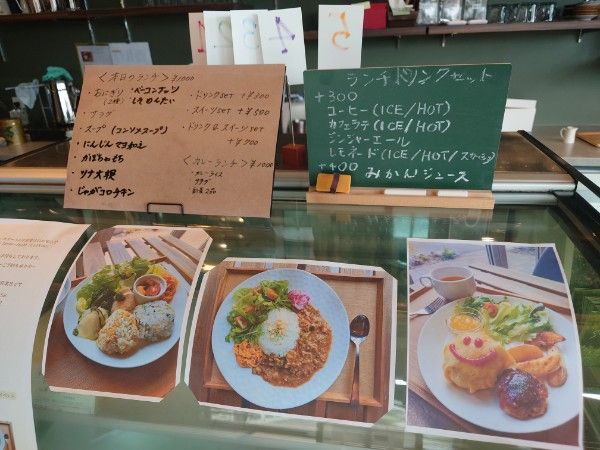 1
2
3
4
5
<本日のランチ> ¥1000
・おにぎり ベーコンチーズ
(2種) しそめんたい
・サラダ
・スープ (コンソメスープ)
・にんじん
・かぼちゃ
・ツナ大根
・じゃがコロチキン
・ドリンクSET +¥300
・スイーツSET +¥500
・ドリンク&スイーツSET
+¥700
<カレーランチ> ¥1000
・カレーライス
・サラダ
・副菜2品
ランチドリンクセット
+300
コーヒー (ICE/HOT)
カフェラテ (ICE/HOT)
ジンジャーエール
レモネード (ICE/HOT/スカッシュ)
+400 みかんジュース